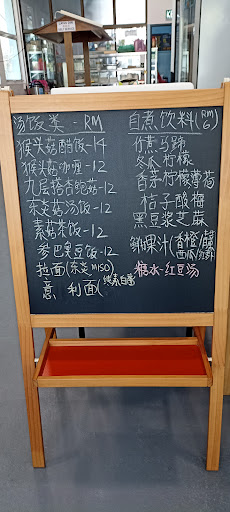 汤饭类 - RM
猴头菇醋饭-14
猴头菇咖喱-12
九层塔杏鲍菇-12
冬炎菇汤饭-12
素菇茶饭-12
参巴臭豆饭-12
拉面(冬炎 miso)
意 利面(
自煮饮料(RM6)
竹蔗马蹄
冬瓜柠檬
香茅柠檬
桔子酸梅
黑豆浆芝麻
鲜果汁(香橙
西瓜
糖水-红豆汤